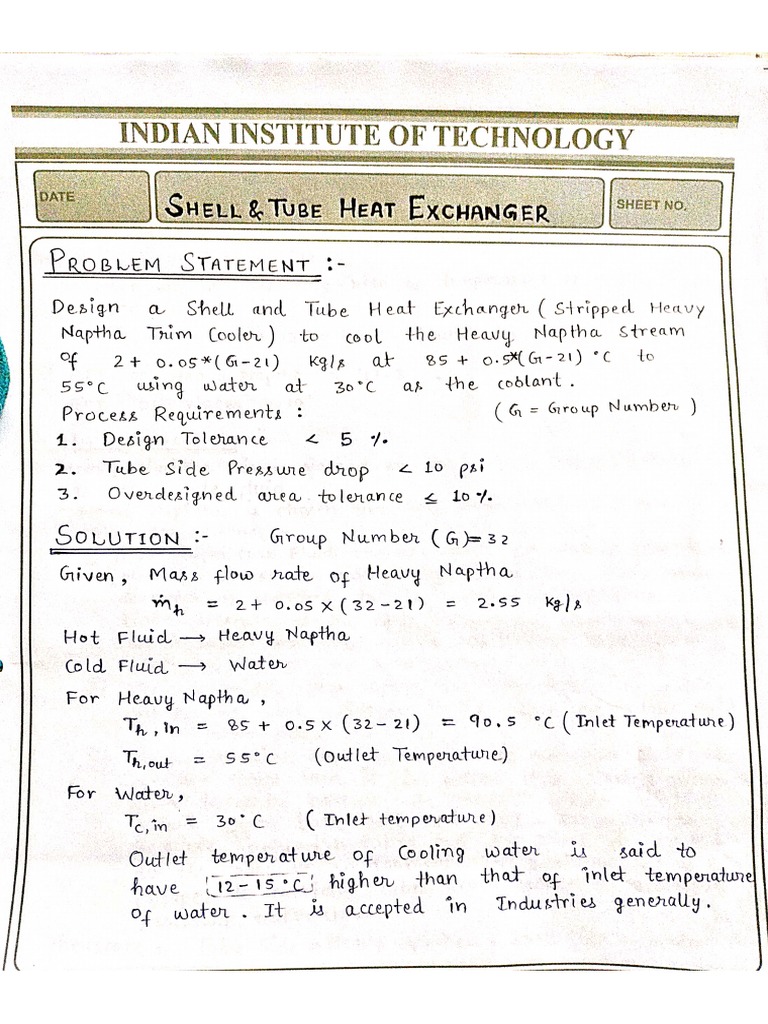 INDIAN INSTITUTE OF TECHNOLOGY
DATE
SHELL & TUBE HEAT EXCHANGER
SHEET NO.
PROBLEM STATEMENT :-
Design a Shell and Tube Heat Exchanger ( Stripped Heavy
Naptha Trim Cooler) to cool the Heavy Naptha Stream
of 2 + 0.05*(G-21) Kg/s at 85 + 0.5*(G-21) °C to
55°C using water at 30°C as the coolant.
Process Requirements : ( G = Group Number )
1. Design Tolerance < 5 %.
2. Tube Side Pressure drop < 10 psi
3. Overdesigned area tolerance ≤ 10%.
SOLUTION :- Group Number (G)= 32
Given, Mass flow rate of Heavy Naptha
ṁh = 2 + 0.05 × (32-21) = 2.55 Kg/s
Hot Fluid → Heavy Naptha
Cold Fluid → Water
For Heavy Naptha,
Th,in = 85 + 0.5 × (32-21) = 90.5 °C ( Inlet Temperature)
Th,out = 55°C (Outlet Temperature)
For Water,
Tc,in = 30°C ( Inlet temperature)
Outlet temperature of Cooling water is said to
have 12-15°C higher than that of inlet temperature
of water. It is accepted in Industries generally.